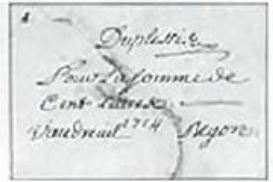 Duplessis
Pour La Somme de
Cent Livres
Vaudreuil 1714 Begon